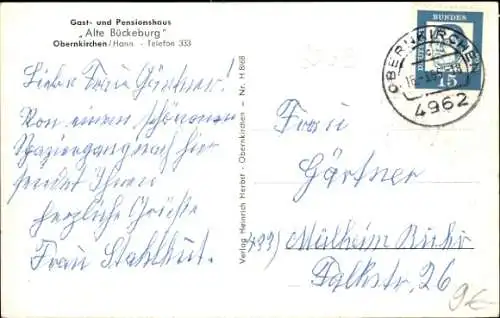 Gast- und Pensionshaus
„Alte Bückeburg"
Obernkirchen/Hann · Telefon 333
Lieber Frau Gärtner!
Von einem schönenen
Spaziergang nach hier
sendet Ihnen
herzliche Grüße
Frau Stahlhut.
Verlag Heinrich Herbst - Obernkirchen – Nr. H 868
DEUTSCHE BUNDESPOST
15
OBERNKIRCHEN
4962
Frau
Gärtner
433) Mülheim Ruhr
Falkstr. 26
9€